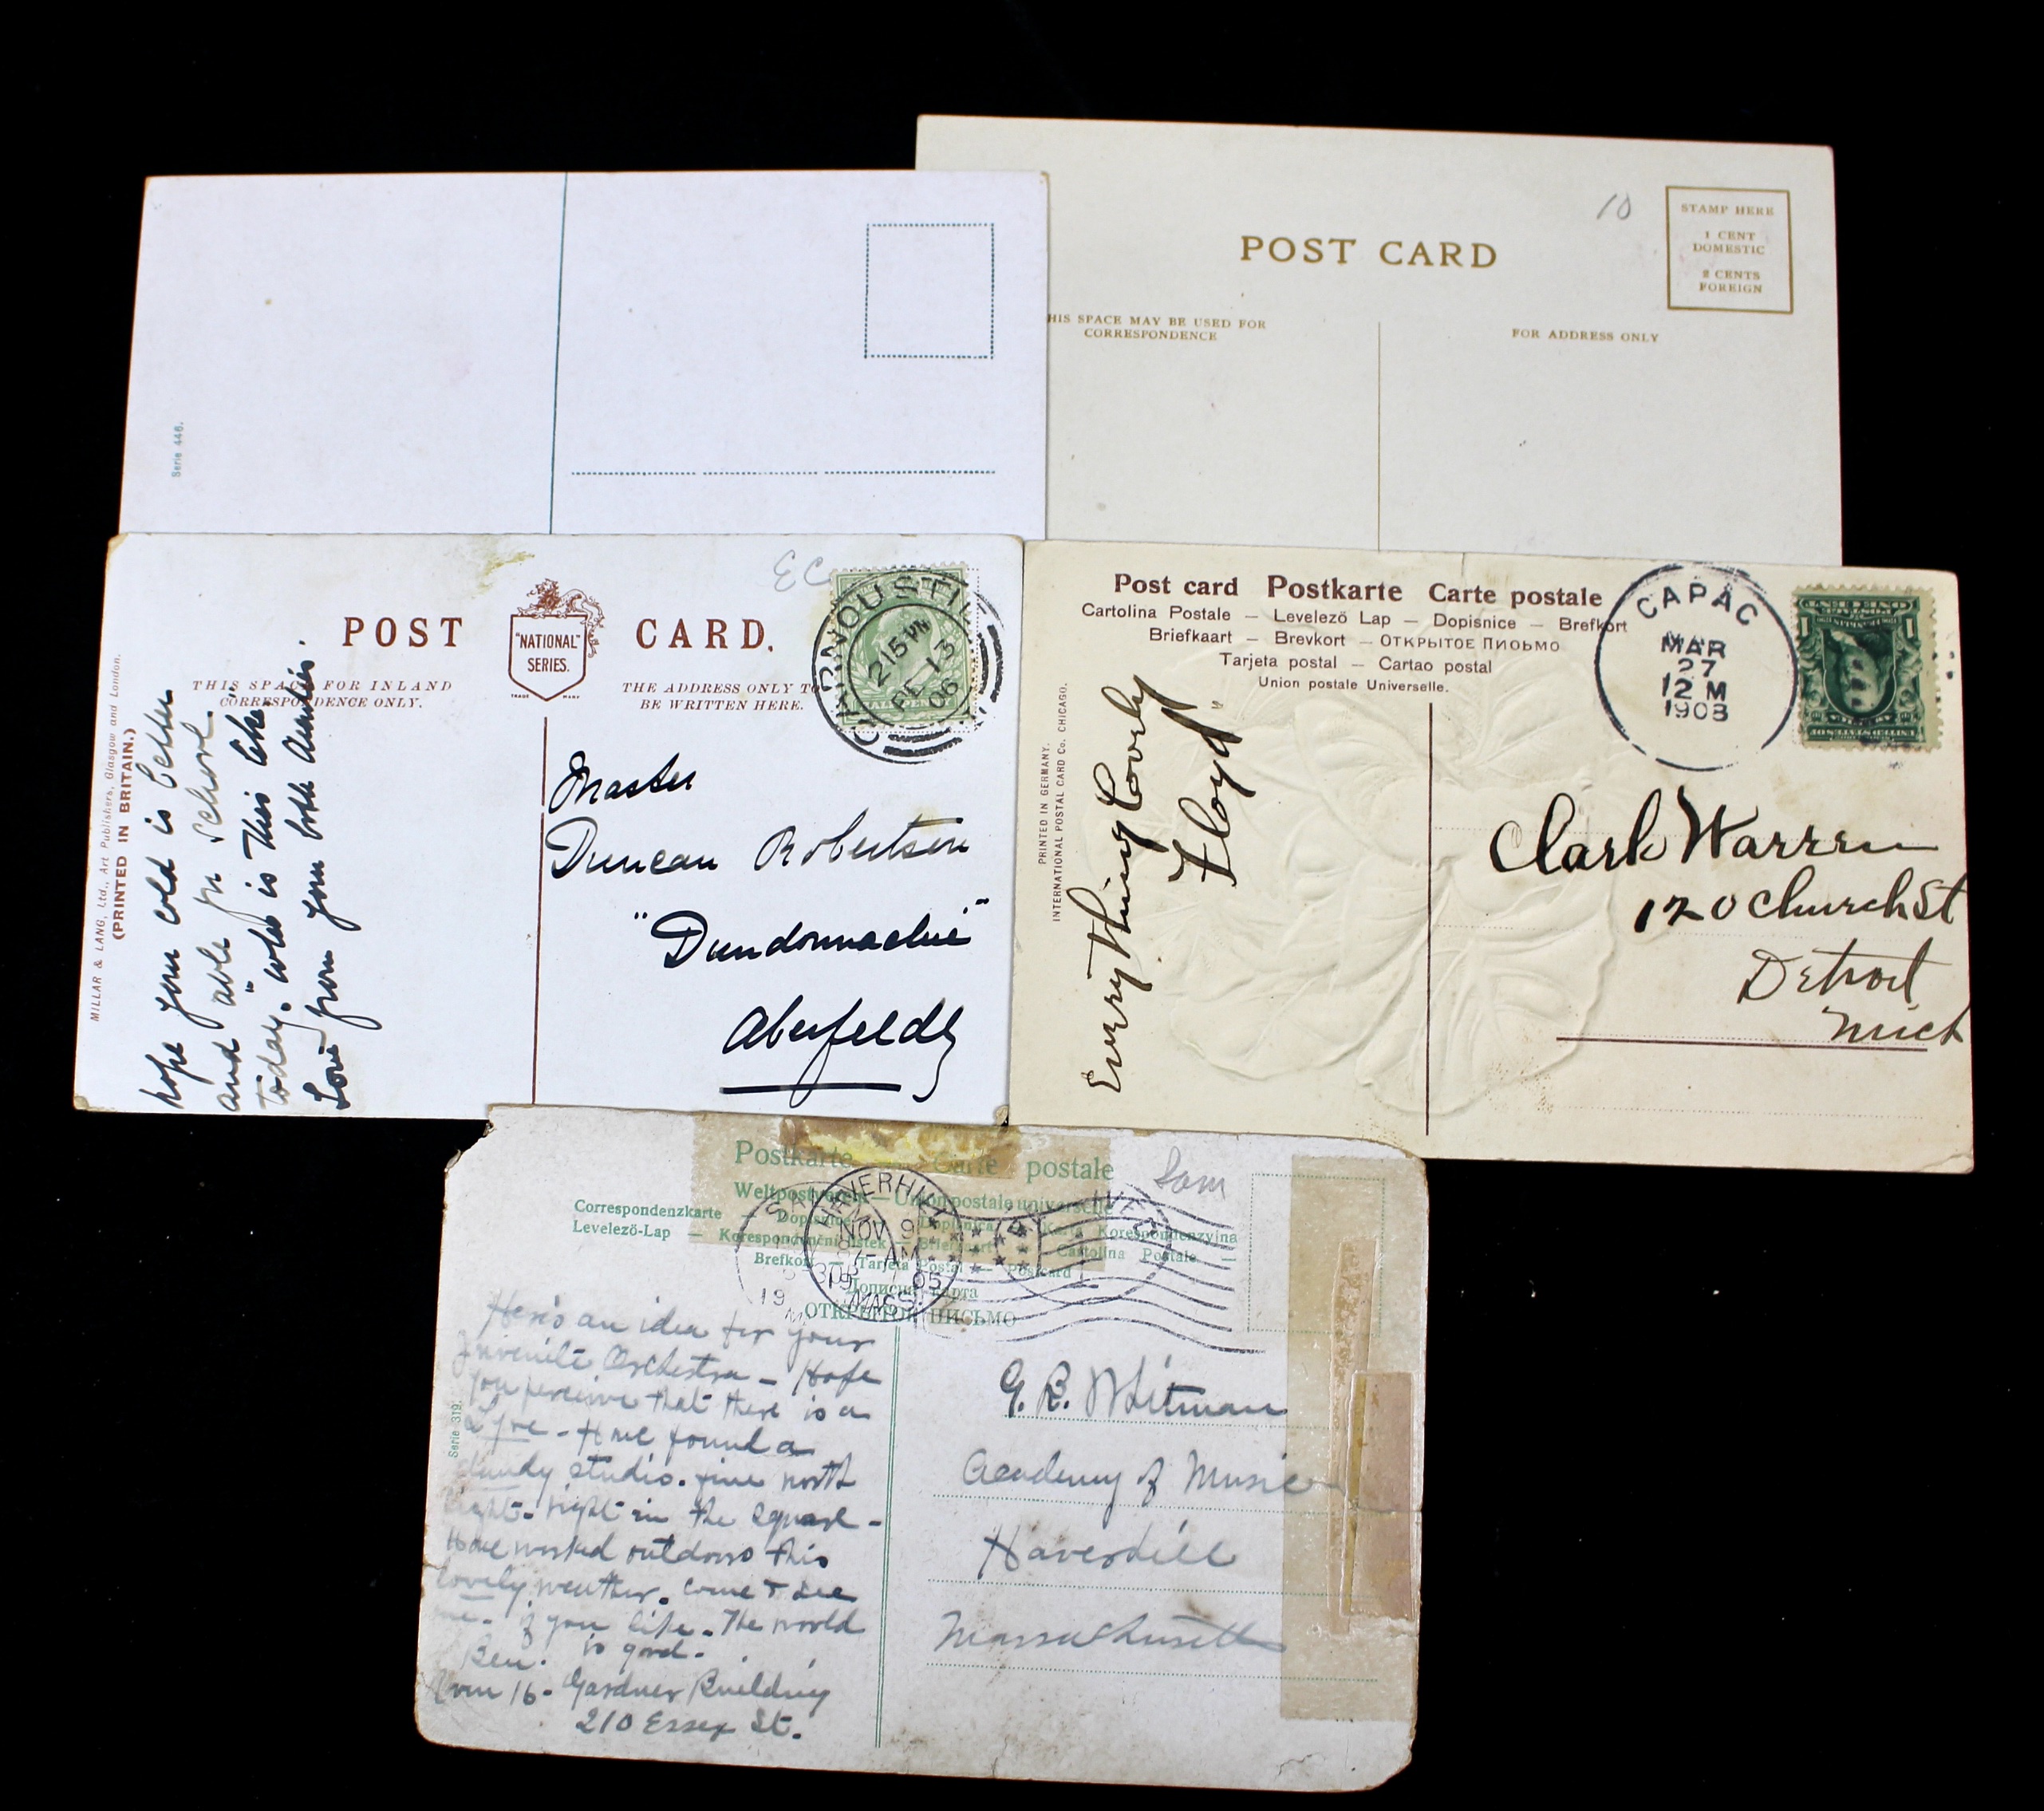 Serie 446.
10
POST CARD
STAMP HERE
1 CENT
DOMESTIC
2 CENTS
FOREIGN
HIS SPACE MAY BE USED FOR
CORRESPONDENCE
FOR ADDRESS ONLY
MILLAR & LANG, Ltd., Art Publishers, Glasgow and London.
(PRINTED IN BRITAIN.)
EC
POST CARD.
"NATIONAL"
SERIES.
TRADE MARK
THIS SPACE FOR INLAND
CORRESPONDENCE ONLY.
THE ADDRESS ONLY TO
BE WRITTEN HERE.
CARNOUSTIE
215 PM
FE 13
06
HALFPENNY
hope your cold is better
and able for school
today. who is this like
Love from your both Aunties.
Master
Duncan Robertson
"Dundonnachie"
Aberfeldy
Post card Postkarte Carte postale
Cartolina Postale — Levelező Lap — Dopisnice — Brefkort
Briefkaart — Brevkort — ОТКРЫТОЕ ПИСЬМО
Tarjeta postal — Cartao postal
Union postale Universelle.
PRINTED IN GERMANY.
INTERNATIONAL POSTAL CARD Co. CHICAGO.
CAPAC
MAR
27
12 M
1908
Every thing Lovely
Floyd
Clark Warren
120 Church St
Detroit
Mich
Postkarte Carte postale
Weltpostverein — Union postale universelle
Correspondenzkarte — Dopisnice — Dopisnica — Karta Korespondenzyjna
Levelező-Lap — Korespondenční lístek — Briefkaart — Cartolina Postale —
Brefkort — Tarjeta Postal — Postcard
Дописна карта
ОТКРЫТОЕ ПИСЬМО
Sam
HAVERHILL
NOV 9
7-AM
05
MASS.
Serie 319.
Here's an idea for your
Juvenile Orchestra — Hope
you perceive that there is a
Lyre - Have found a
dandy studio. fine north
light. right in the square —
Have worked outdoors this
lovely weather. Come & see
me. if you like. The world
Ben. is good.
Room 16 - Gardner Building
210 Essex St.
G. R. Whitman
Academy of Music
Haverhill
Massachusetts